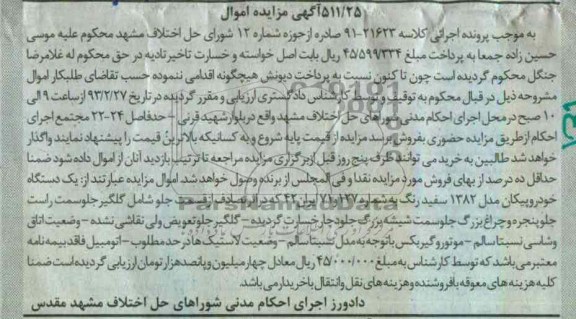 ۵۱۱/۲۵آگهی مزایده اموال
به موجب پرونده اجرائی کلاسه ۲۱۶۲۳-۹۱ صادره از حوزه شماره ۱۲ شورای حل اختلاف مشهد محکوم علیه موسی
حسین زاده جمعا به پرداخت مبلغ ۴۵/۵۹۹/۳۳۴ ریال بابت اصل خواسته و خسارت تاخیر تادیه در حق محکوم له غلامرضا
جنگل محکوم گردیده است چون تا کنون نسبت به پرداخت دیونش هیچگونه اقدامی ننموده حسب تقاضای طلبکار اموال
مشروحه ذیل در قبال محکوم به توقیف و توسط کارشناس دادگستری ارزیابی و مقرر گردیده در تاریخ ۹۳/۲/۲۷ از ساعت ۹ الی
۱۰ صبح در محل اجرای احکام مدنی شوراهای حل اختلاف مشهد واقع در بلوار شهید قرنی - حدفاصل ۲۴-۲۲ مجتمع اجرای
احکام از طریق مزایده حضوری بفروش برسد مزایده از قیمت پایه شروع و به کسانیکه بالاترین قیمت را پیشنهاد نمایند واگذار
خواهد شد طالبین به خرید می توانند ظرف پنج روز قبل از برگزاری مزایده مراجعه تا ترتیب بازدید آنان از اموال داده شود ضمنا
حداقل ده درصد از بهای فروش مورد مزایده نقدا و فی المجلس از برنده وصول خواهد شد. اموال مزایده عبارتند از: یک دستگاه
خودرو پیکان مدل ۱۳۸۲ سفید رنگ به شماره ایران که در جلو شامل گلگیر جلو سمت راست
جلو پنجره و چراغ بزرگ جلو سمت شیشه بزرگ جلو دچار خسارت گردیده - گلگیر جلو تعویض ولی نقاشی نشده - وضعیت اتاق
وشاسی نسبتا سالم - موتور و گیربکس با توجه به مدل نسبتا سالم - وضعیت لاستیک ها در حد مطلوب - اتومبیل فاقد بیمه نامه
معتبر می باشد که توسط کارشناس به مبلغ ۴۵/۰۰۰/۰۰۰ ریال معادل چهار میلیون و پانصد هزار تومان ارزیابی گردیده است ضمنا
کلیه هزینه های معوقه با فروشنده و هزینه های نقل و انتقال با خریدار می باشد.
دادورز اجرای احکام مدنی شوراهای حل اختلاف مشهد مقدس